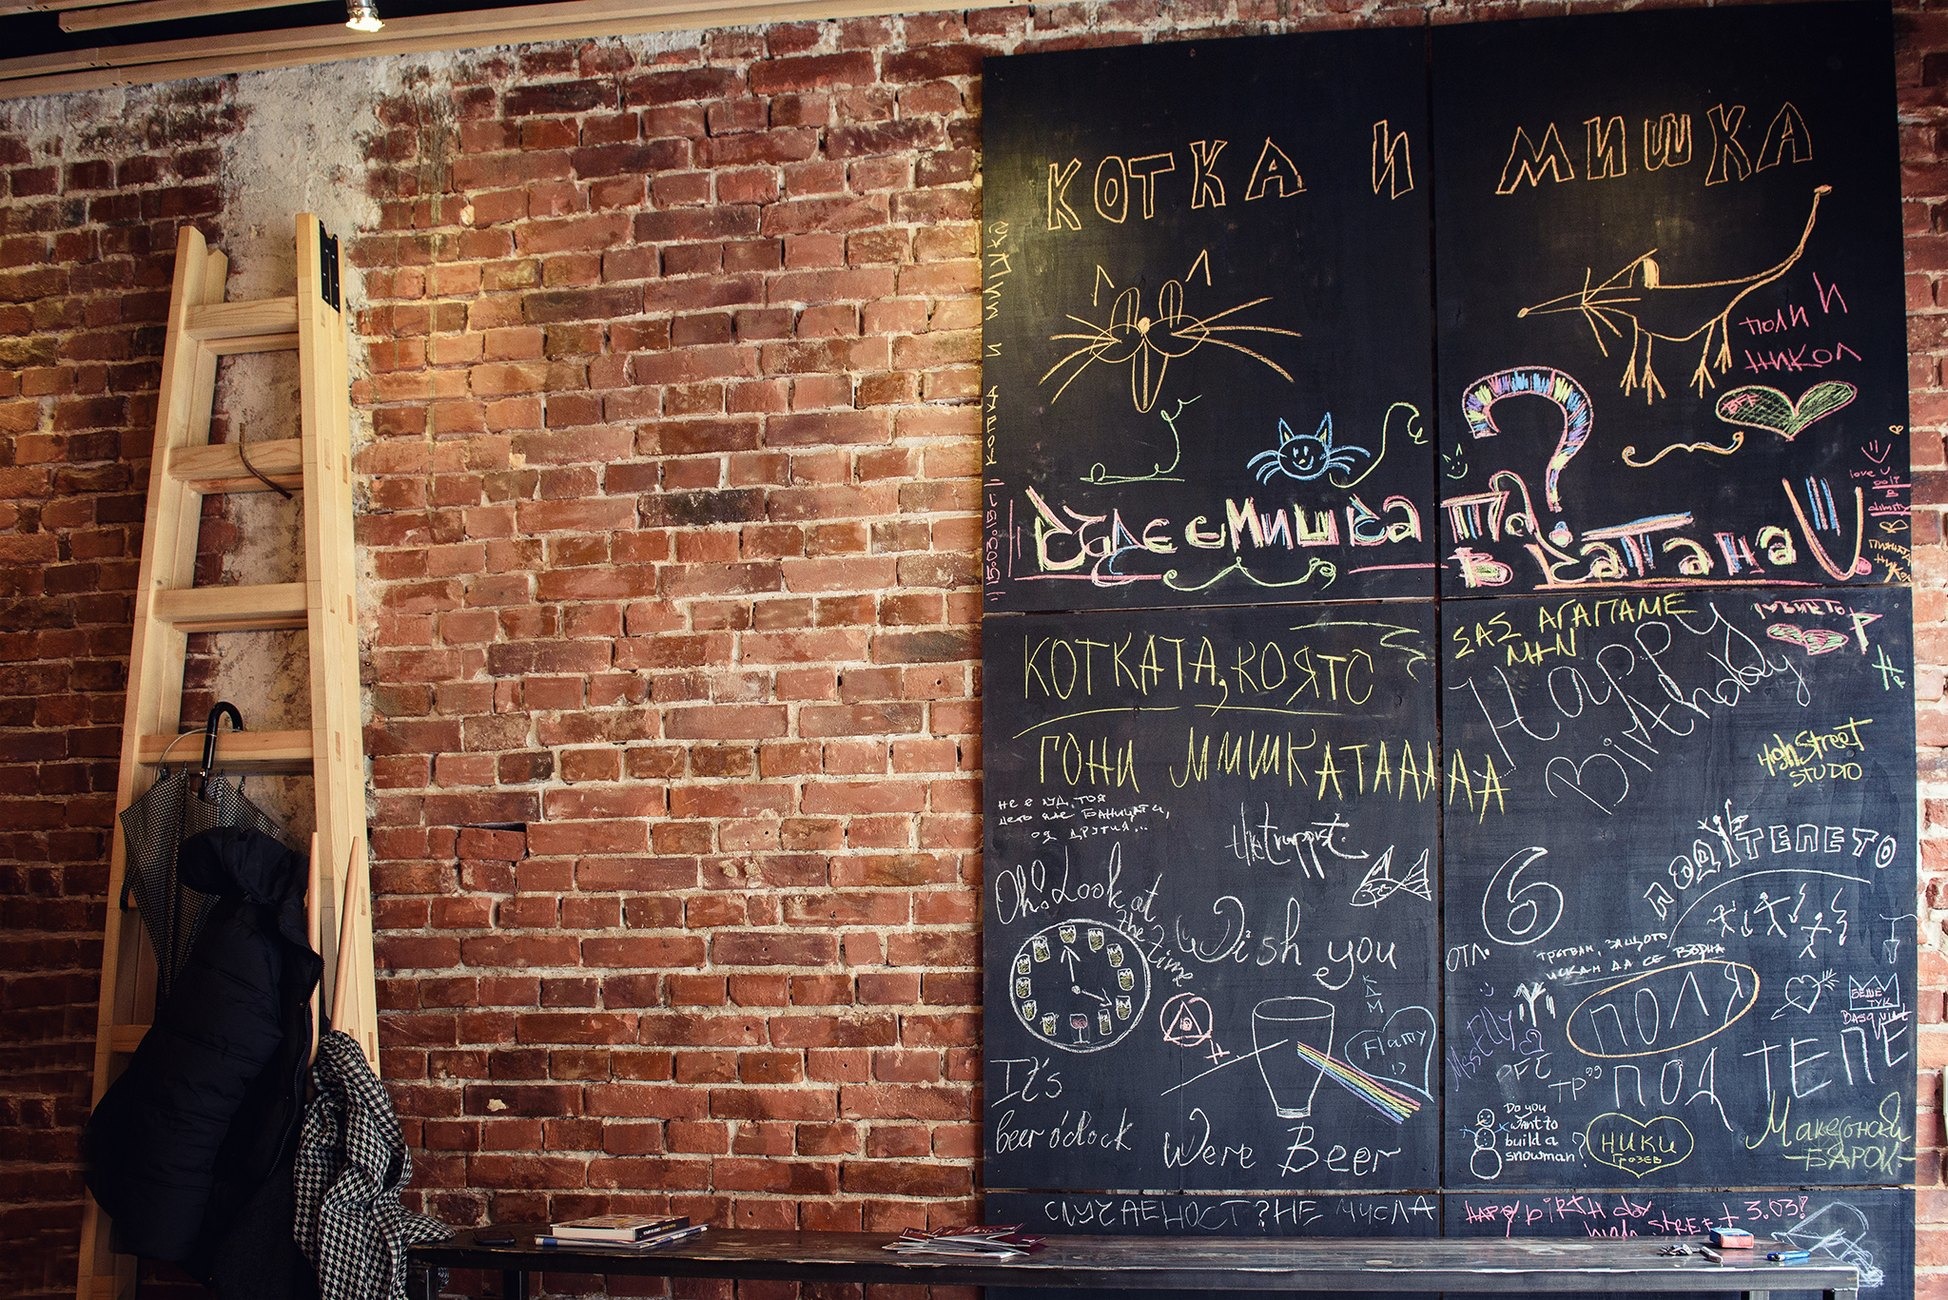 КОТКА И МИШКА
ПОЛИ И
НИКОЛ
BFF
Къде е Мишката?
в капана
love u
15.03.15 г.
КОТКАТА, КОЯТО
ГОНИ МИШКАТААААА
ΣΑΣ ΑΓΑΠΑΜΕ
Happy
Birthday
High Street
STUDIO
не е луд, тоя
дето яде баницата,
од другия...
ПОД ТЕПЕТО
6
ОТЛ.
Oh! Look at
the time
Wish you
It's
beer o'clock
Were Beer
Flamy
ТРЪГВАМ, ЗАЩОТО
ИСКАМ ДА СЕ ВЪРНА
ПОЛЯ
БЕШЕ
ТУК
BASQUIAT
ПОД ТЕПЕ
Do you
want to
build a
snowman?
НИКИ
ГРОЗЕВ
Македонский
БАРОК
СЛУЧАЕНОСТ? НЕ МИСЛА
HAPPY BIRTHday
HIGH STREET 3.03!